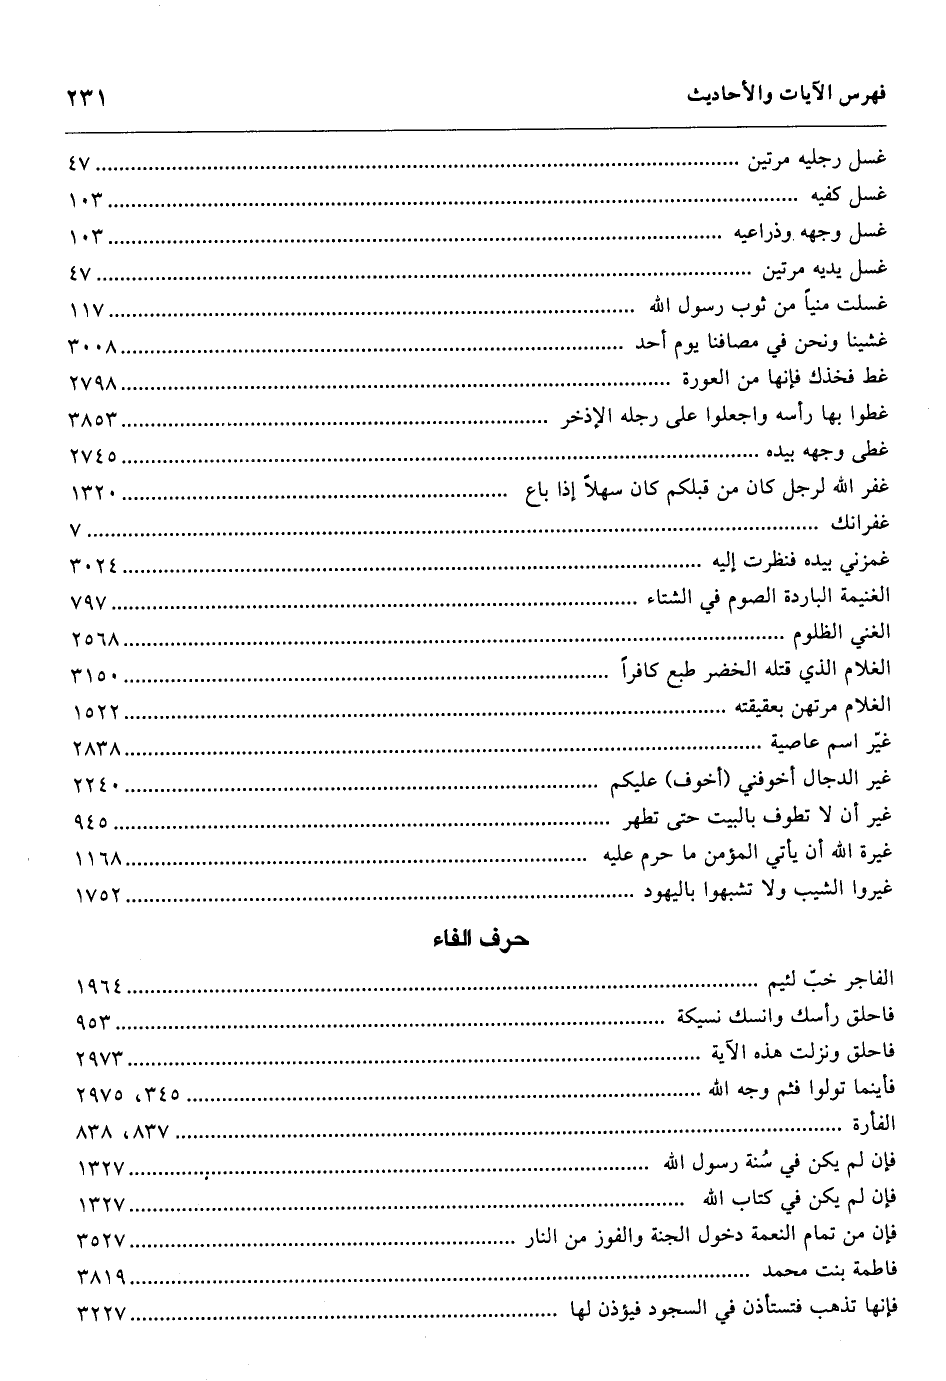 فهرس الآيات والأحاديث ٢٣١
غسل رجليه مرتين ........ ٤٧
غسل كفيه ........ ١٠٣
غسل وجهه وذراعيه ........ ١٠٣
غسل يديه مرتين ........ ٤٧
غسلت منياً من ثوب رسول الله ........ ١١٧
غشينا ونحن في مصافنا يوم أحد ........ ٣٠٠٨
غط فخذك فإنها من العورة ........ ٢٧٩٨
غطوا بها رأسه واجعلوا على رجله الإذخر ........ ٣٨٥٣
غطى وجهه بيده ........ ٢٧٤٥
غفر الله لرجل كان من قبلكم كان سهلاً إذا باع ........ ١٣٢٠
غفرانك ........ ٧
غمزني بيده فنظرت إليه ........ ٣٠٢٤
الغنيمة الباردة الصوم في الشتاء ........ ٧٩٧
الغني الظلوم ........ ٢٥٦٨
الغلام الذي قتله الخضر طبع كافراً ........ ٣١٥٠
الغلام مرتهن بعقيقته ........ ١٥٢٢
غيّر اسم عاصية ........ ٢٨٣٨
غير الدجال أخوفني (أخوف) عليكم ........ ٢٢٤٠
غير أن لا تطوف بالبيت حتى تطهر ........ ٩٤٥
غيرة الله أن يأتي المؤمن ما حرم عليه ........ ١١٦٨
غيروا الشيب ولا تشبهوا باليهود ........ ١٧٥٢
حرف الفاء
الفاجر خبّ لئيم ........ ١٩٦٤
فاحلق رأسك وانسك نسيكة ........ ٩٥٣
فاحلق ونزلت هذه الآية ........ ٢٩٧٣
فأينما تولوا فثم وجه الله ........ ٣٤٥، ٢٩٧٥
الفأرة ........ ٨٣٧، ٨٣٨
فإن لم يكن في سُنة رسول الله ........ ١٣٢٧
فإن لم يكن في كتاب الله ........ ١٣٢٧
فإن من تمام النعمة دخول الجنة والفوز من النار ........ ٣٥٢٧
فاطمة بنت محمد ........ ٣٨١٩
فإنها تذهب فتستأذن في السجود فيؤذن لها ........ ٣٢٢٧